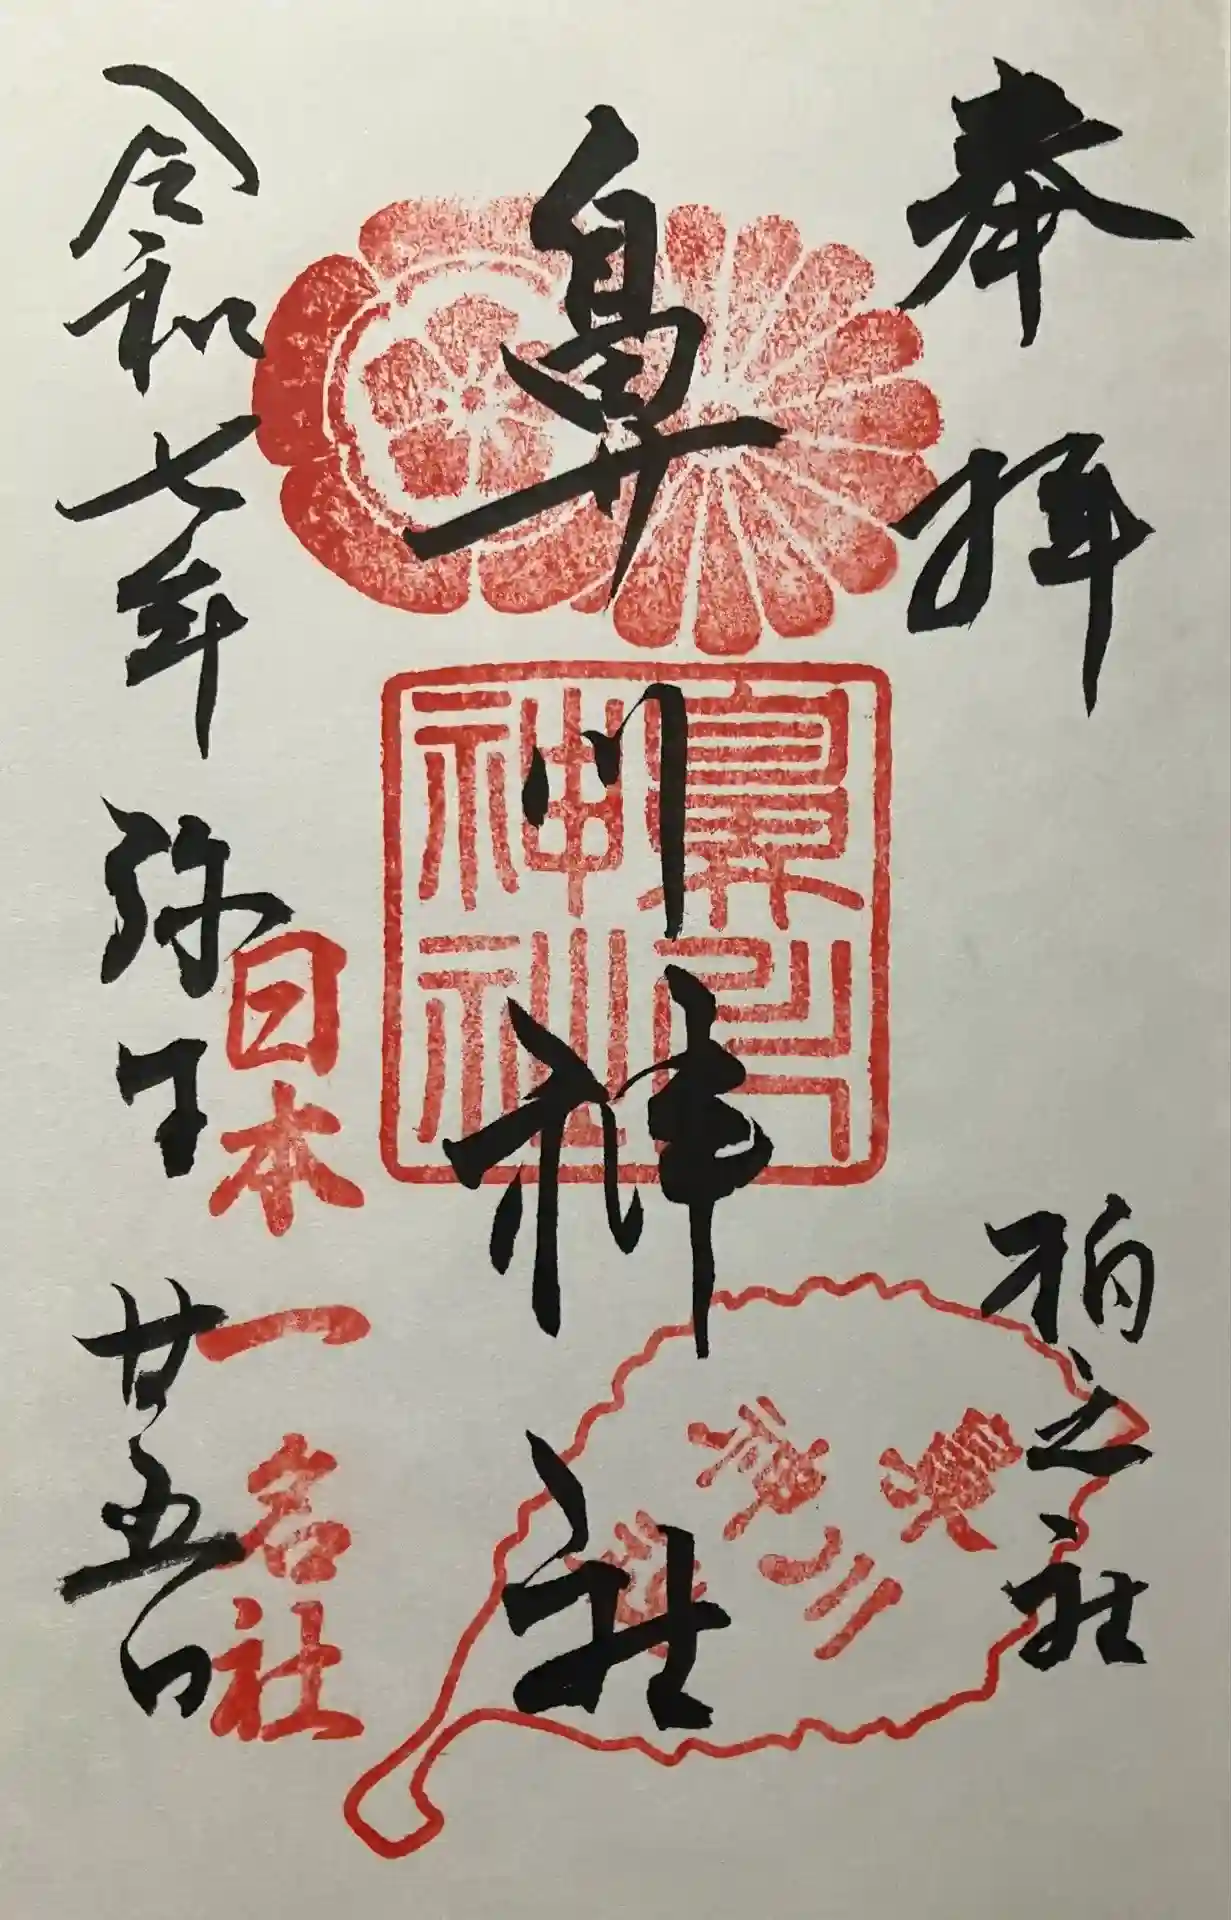 奉拝
柏之社
鼻川神社
鼻川神社
鼻川神社
日本一名社
令和七年弥生廿五日